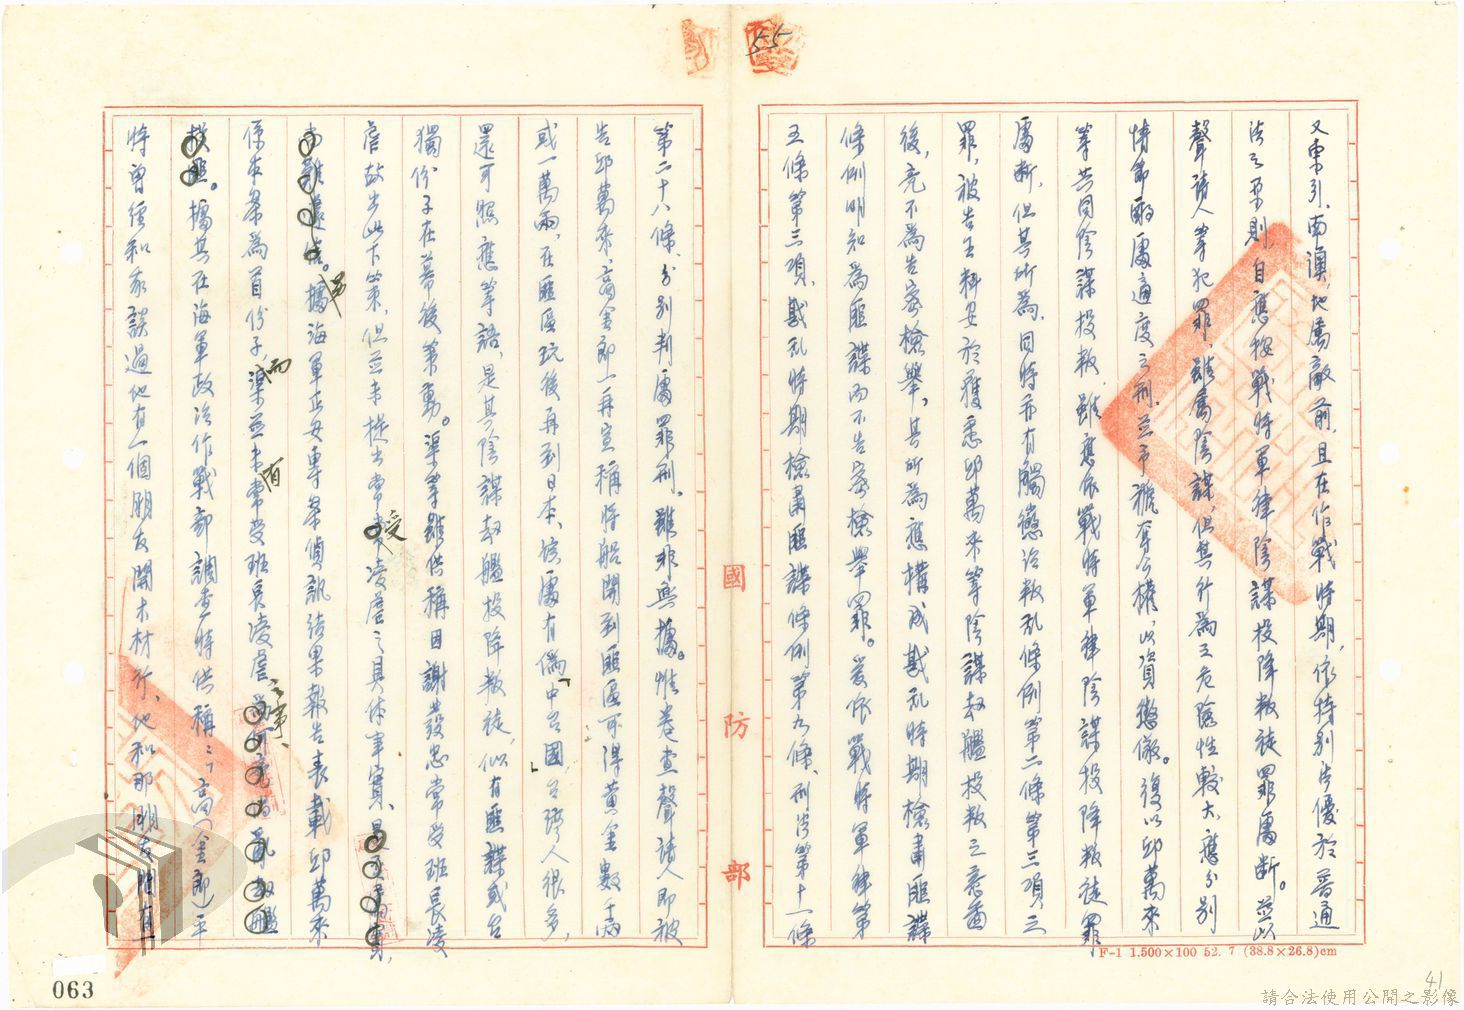 55
又東引、南澳、地屬敵前、且在作戰時期、依特別法優於普通
法之原則、自應按戰時軍律陰謀投降叛徒罪處斷。並以
聲請人等犯罪、雖屬陰謀、但其行為之危險性較大、應分別
情節酌處適度之刑、並予褫奪公權、以資懲儆。復以邱萬來
等共同陰謀投叛、雖應依戰時軍律陰謀投降叛徒罪
處斷、但其所為、同時亦有觸懲治叛亂條例第二條第三項之
罪、被告王科安於獲悉邱萬來等陰謀劫艦投叛之意圖
後、竟不為告密檢舉、其所為應構成戡亂時期檢肅匪諜
條例明知為匪諜而不告密檢舉罪。爰依戰時軍律第
五條第三項、戡亂時期檢肅匪諜條例第九條、刑法第十一條
第二十八條、分別判處罪刑、雖非無據。惟卷查聲請人即被
告邱萬來、高金郎一再宣稱將船開到匪區可得黃金數千兩
或一萬兩、在匪區玩後再到日本、該處有偽「中台國」台灣人很多、
還可照應等語、是其陰謀劫艦投降叛徒、似有匪諜或台
獨份子在幕後策動。渠等雖供稱因謝發忠常受班長凌
虐故出此下策、但並未提出常受凌虐之具体事實、
據海軍正安專案偵訊結果報告表載邱萬來
係本案為首份子、而渠並未常有受班長凌虐之事、
據其在海軍政治作戰部調查時供稱：「高金郎平
時曾經和我談過他有一個朋友開木材行、他和那朋友
國防部
F-1 1.500×100 52. 7 (38.8×26.8)cm
063
41
請合法使用公開之影像